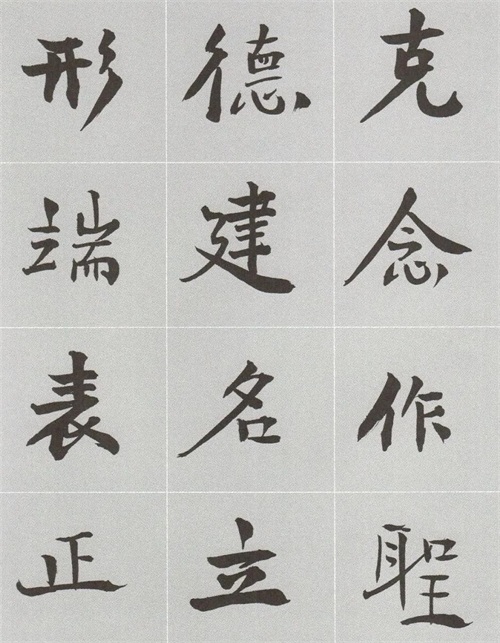 克念作聖
德建名立
形端表正